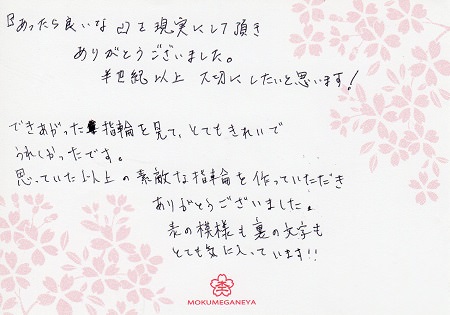 『あったら良いな』を現実にして頂き
ありがとうございました。
半世紀以上 大切にしたいと思います!
できあがった指輪を見て、とてもきれいで
うれしかったです。
思っていた以上の素敵な指輪を作っていただき
ありがとうございました。
表の模様も裏の文字も
とても気に入っています!!
MOKUMEGANEYA